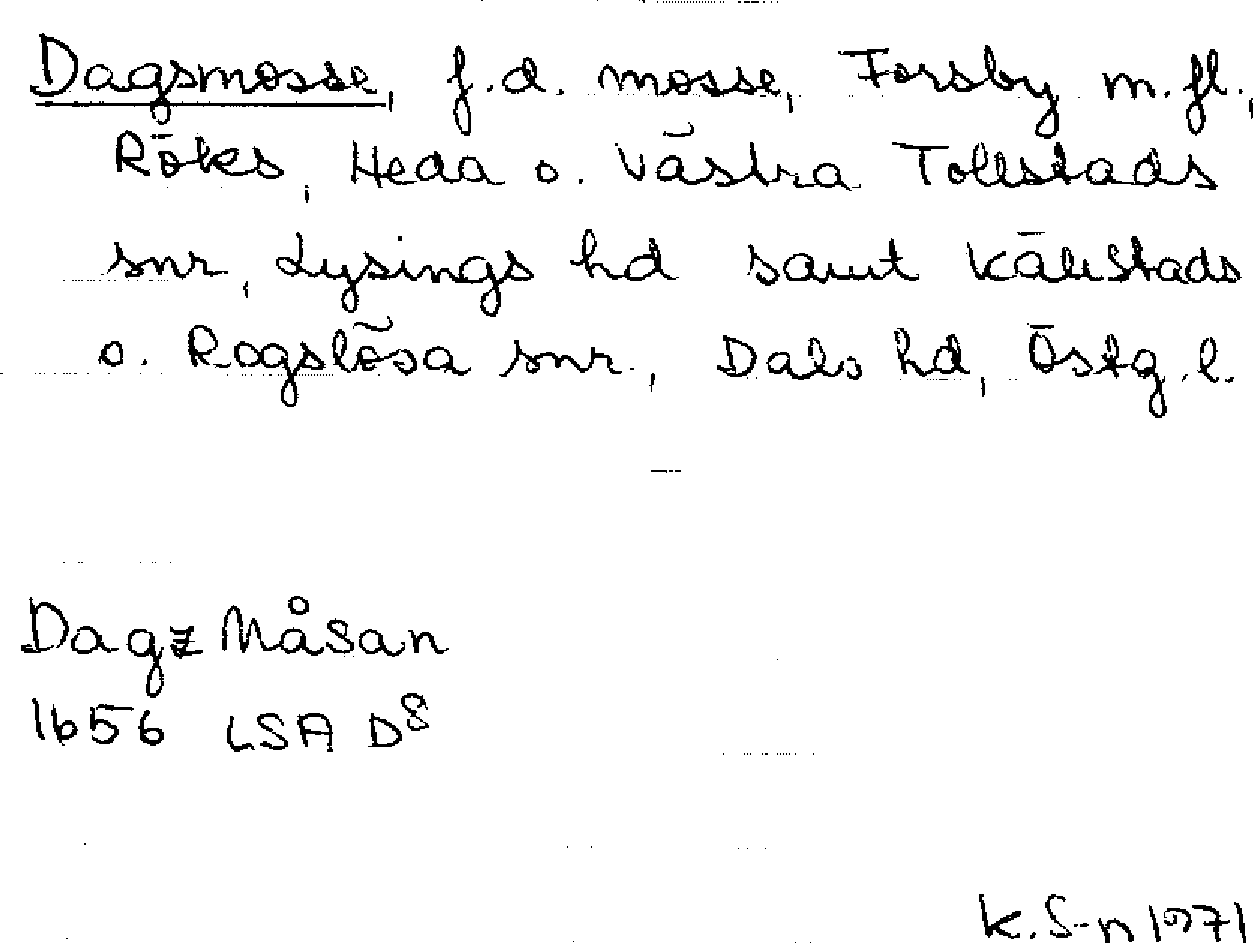 Dagsmosse, f.d. mosse, Forsby m.fl.,
Röks, Heda o. Västra Tollstads
snr, Lysings hd samt Källstads
o. Rogslösa snr., Dals hd, Östg.l.
Dagz Måsan
1656 LSA D8
K.S-n 1971